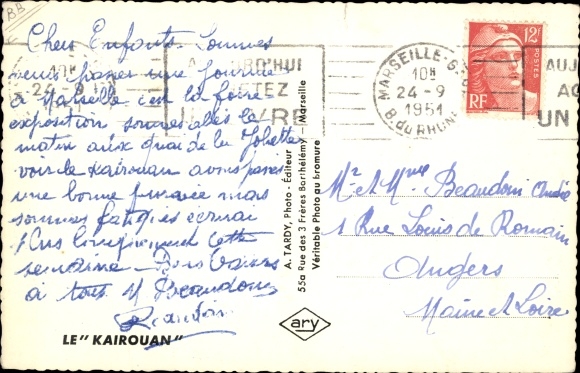 BB
Chers Enfants. Sommes
venus passer une journée
a Marseille c'est la foire
exposition sommes allés le
matin aux quai de la Joliette
voir le Kairouan avons passé
une bonne journée mais
sommes fatigués
plus longuement cette
semaine Bons baisers
à tous M Beaudouin
Beaudouin
LE "KAIROUAN"
A. TARDY, Photo - Editeur
55a Rue des 3 Frères Barthélémy - Marseille
Véritable Photo au bromure
ary
AUJOURD'HUI
ACHETEZ
UN LIVRE
MARSEILLE-G
10H
24-9
1951
B. DU RHONE
12F
POSTES
RF
AUJ
AC
UN
Mr et Mme Beaudouin André
1 Rue Louis de Romain
Angers
Maine et Loire